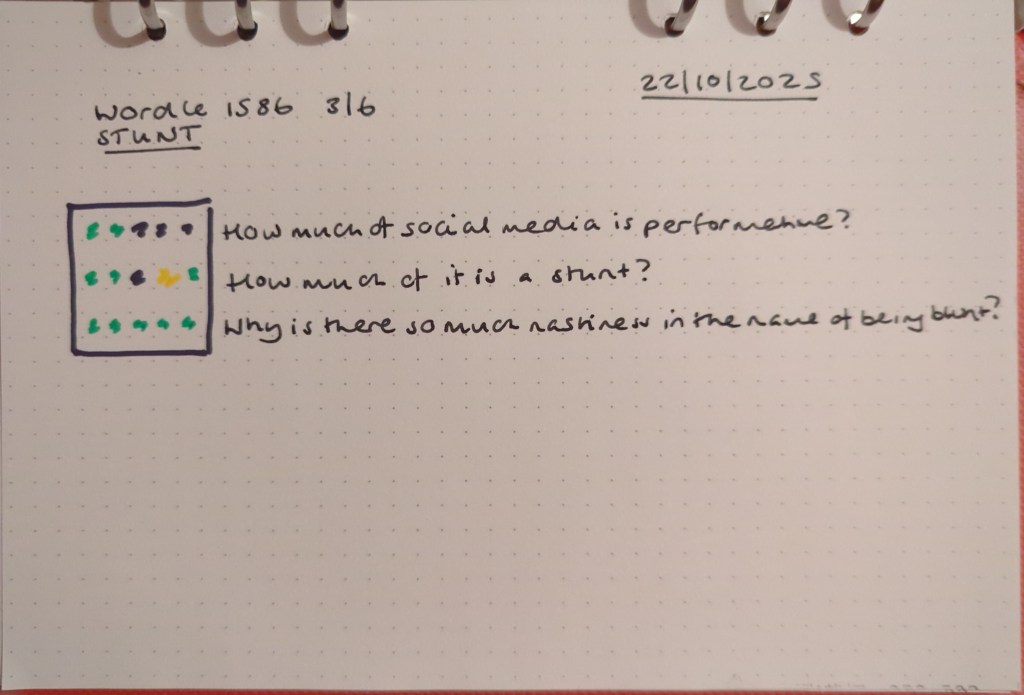 22/10/2025
Wordle 1586 3/6
STUNT
How much of social media is performative?
How much of it is a stunt?
Why is there so much nastiness in the name of being blunt?